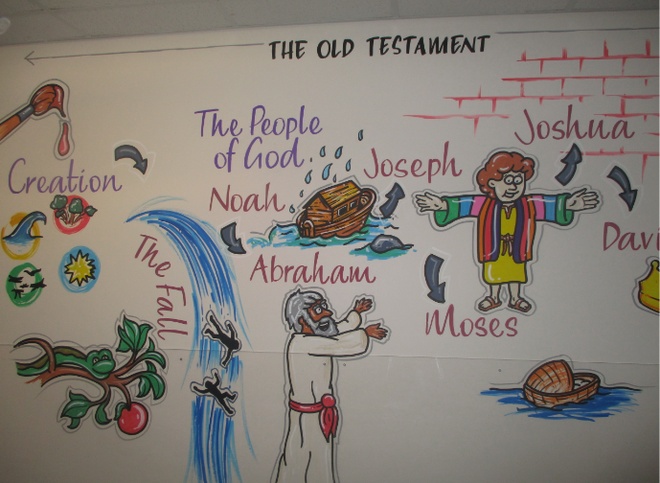 THE OLD TESTAMENT
Creation
The Fall
The People
of God
Noah
Abraham
Joseph
Moses
Joshua
Davi